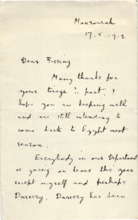 Mansourah
17.5.1912
Dear Bissing
Many thanks for
your image part. I
hope you are keeping well
and are still intending to
come back to Egypt next
season.
Everybody in our Department
is going on leave this year
except myself and perhaps
Daressy. Daressy has been